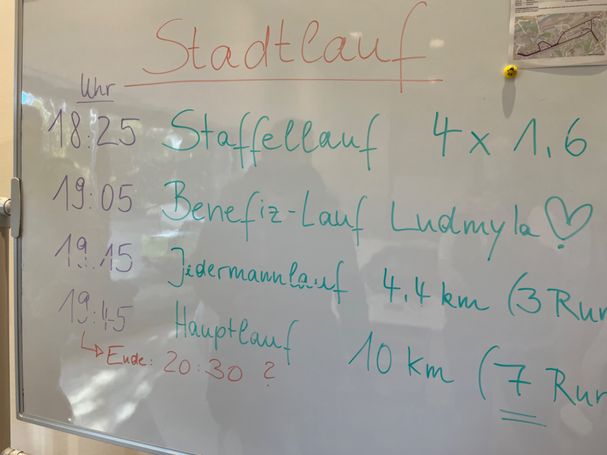 Stadtlauf
Uhr
18:25 Staffellauf 4 x 1,6
19:05 Benefiz-Lauf Ludmyla
19:15 Jedermannlauf 4,4 km (3 Run
19:45 Hauptlauf 10 km (7 Run
↳ Ende: 20:30 ?